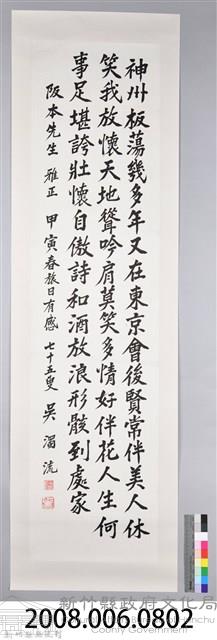 神州板蕩幾多年又在東京會後賢常伴美人休
笑我放懷天地聳吟肩莫笑多情好伴花人生何
事足堪誇壯懷自傲詩和酒放浪形骸到處家
阪本先生 雅正 甲寅春旅日有感 七十五叟 吳濁流
新竹縣政府文化局
County Government
2008.006.0802